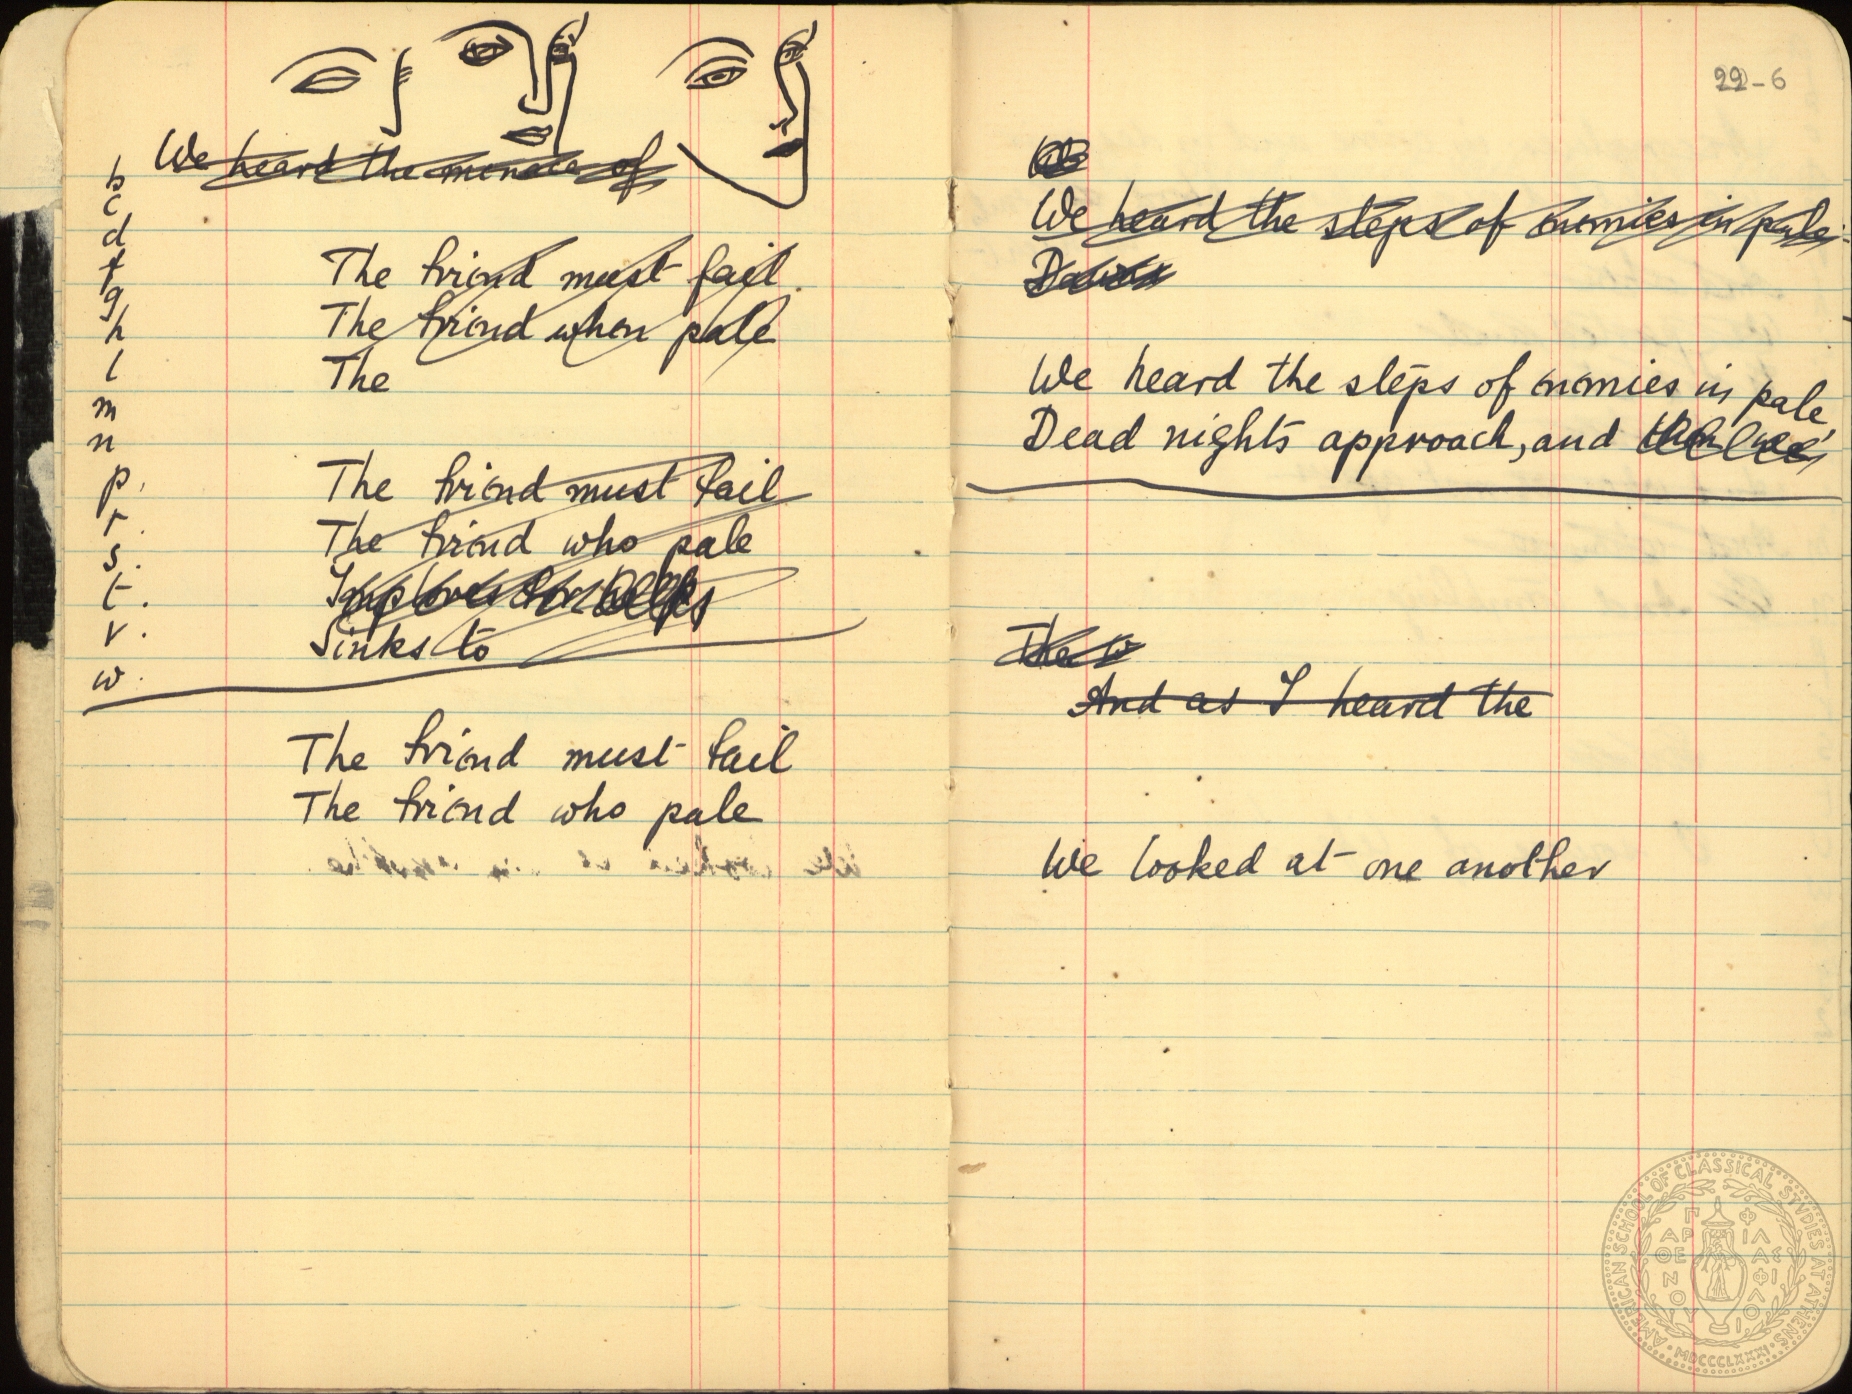 We heard the menace of
b
c
d
f
g
h
l
m
n
p.
r.
s.
t.
v.
w.
The friend must fail
The friend when pale
The
The friend must fail
The friend who pale
Implores for help
Sinks to
The friend must fail
The friend who pale
22-6
We heard the steps of enemies in pale
Dawns
We heard the steps of enemies in pale
Dead nights approach, and
The w
And as I heard the
We looked at one another
AMERICAN SCHOOL OF CLASSICAL STVDIES AT ATHENS
MDCCCLXXXI
ΠΑΡΘΕΝΟΥ ΦΙΛΑΣ ΦΙΛΟΙ